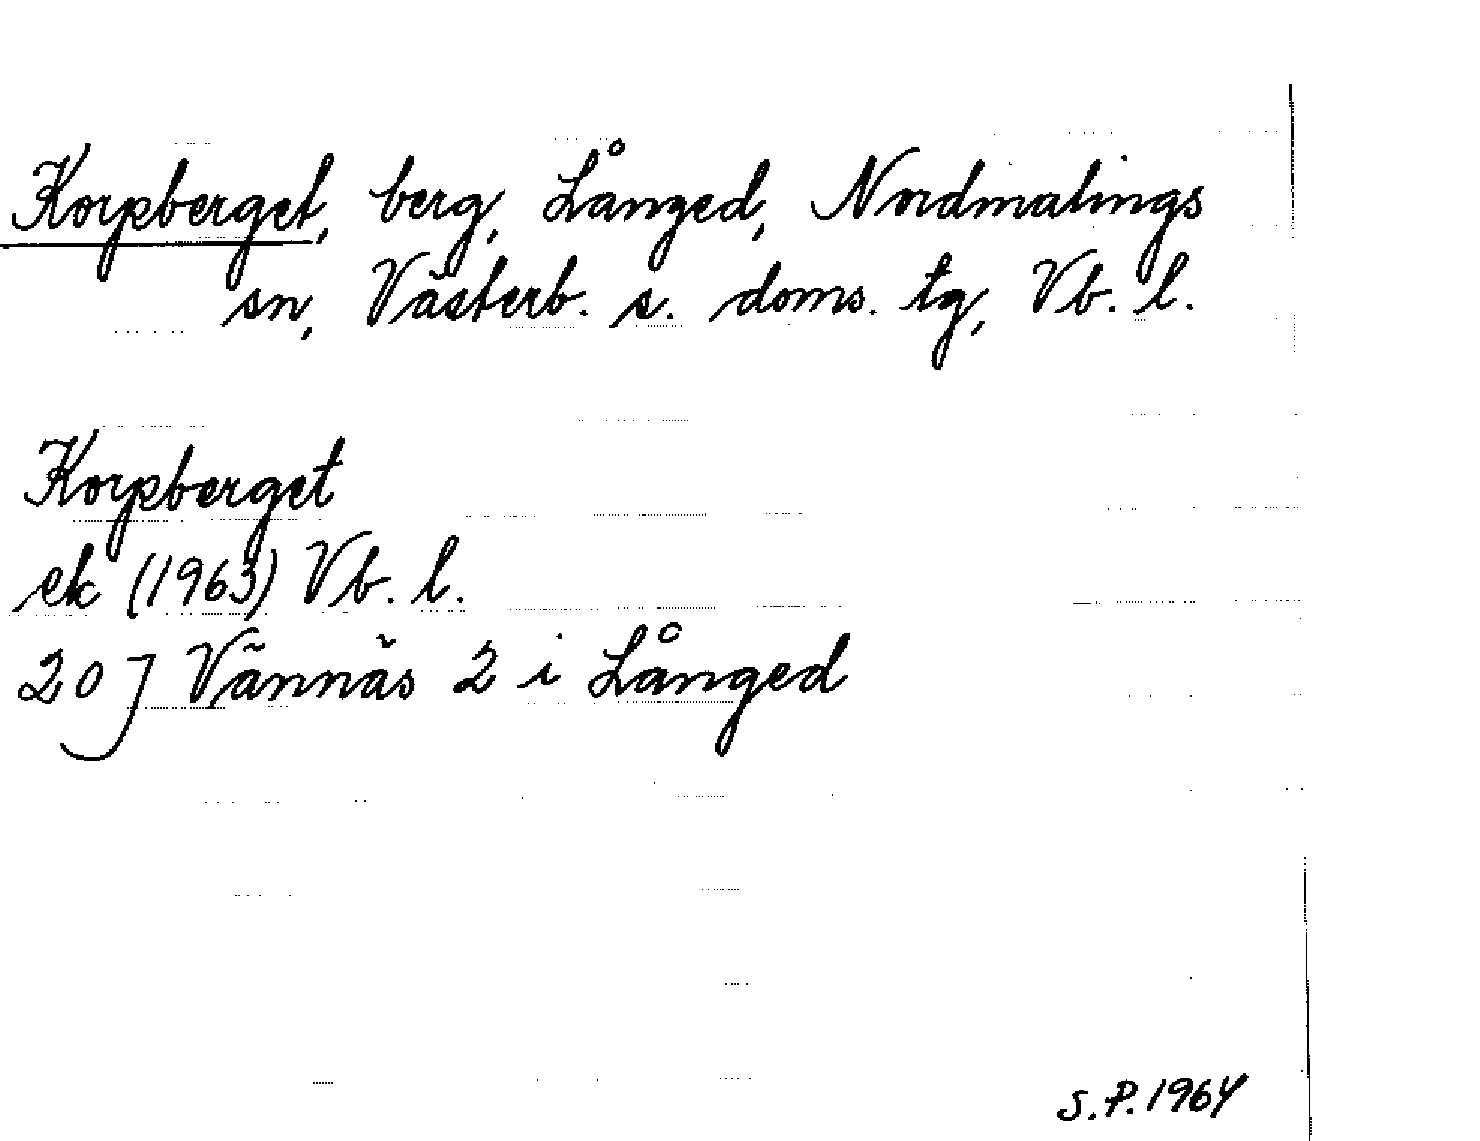 Korpberget, berg, Långed, Nordmalings
sn, Västerb. s. doms. tg, Vb. l.
Korpberget
ek (1963) Vb. l.
20 J Vännäs 2 i Långed
S.P. 1964